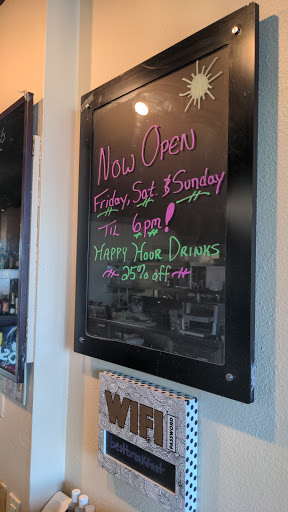 Now Open
Friday, Sat. & Sunday
Til 6pm!
Happy Hour Drinks
25% off
WIFI
PASSWORD